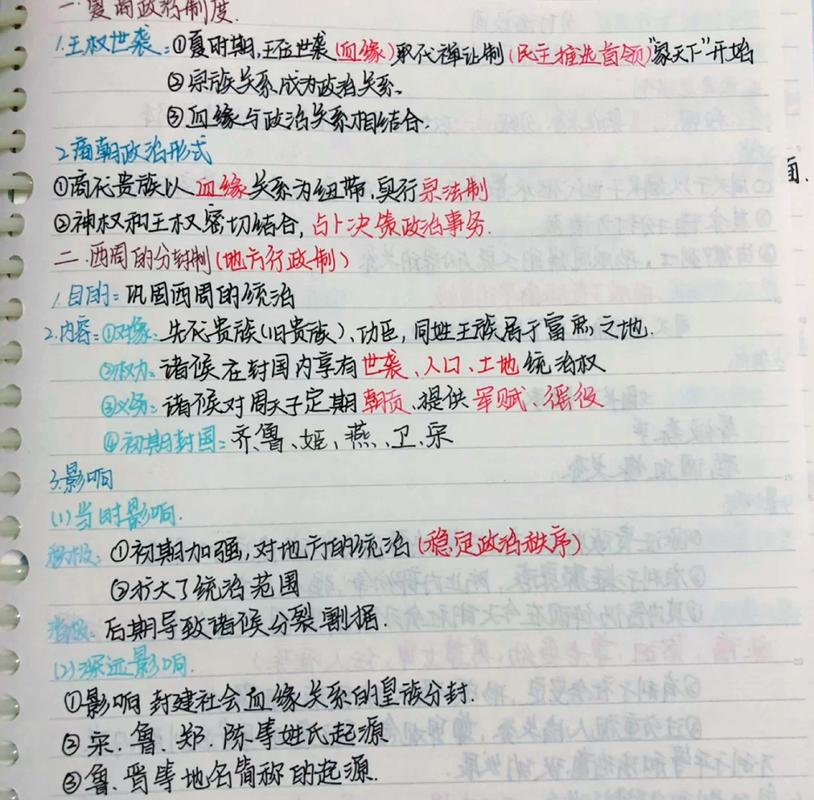 一.夏周政治制度.
1.王权世袭:①夏时期,王位世袭(血缘)取代禅让制(民主推选首领)"家天下"开始
②宗族关系成为政治关系.
③血缘与政治关系相结合.
2.商朝政治形式
①商代贵族以血缘关系为纽带,实行宗法制
②神权和王权密切结合,占卜决策政治事务.
二.西周的分封制(地方行政制)
1.目的:巩固西周的统治
2.内容:①对象:先代贵族(旧贵族)、功臣,同姓王族居于富庶之地.
②权力:诸候在封国内享有世袭、人口、土地统治权
③义务:诸候对周天子定期朝贡、提供军赋、徭役
④初期封国:齐、鲁、姬、燕、卫、宋
3.影响
(1)当时影响.
积极:①初期加强,对地方的统治(稳定政治秩序)
②扩大了统治范围
消极:后期导致诸候分裂割据.
(2)深远影响.
①影响封建社会血缘关系的皇族分封.
②宋.鲁.郑.陈等姓氏起源
③鲁.晋等地名简称的起源.